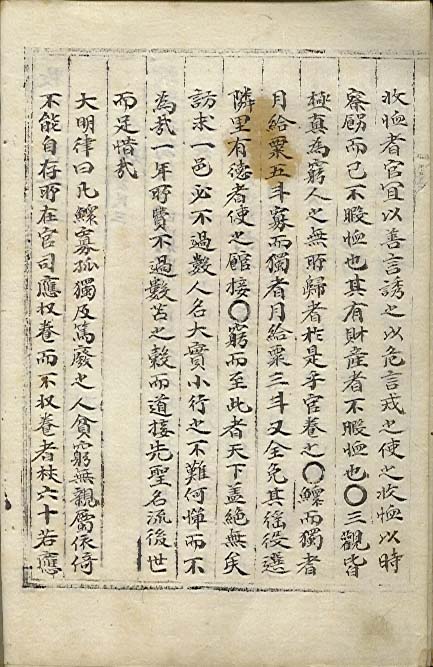 收恤者官宜以善言誘之以危言戒之使之收恤以時
察顧而已不暇恤也其有財産者不暇恤也〇三觀皆
極真為窮人之無所歸者於是乎官養之〇鰥而獨者
月給粟五斗寡而獨者月給粟三斗又全免其徭役選
隣里有德者使之館接〇窮而至此者天下盖絶無矣
訪求一邑必不過數人名大實小行之不難何憚而不
為㢤一年所費不過數苫之穀而道接先聖名流後世
而足惜㢤
大明律曰凡鰥寡孤獨及篤廢之人貧窮無親屬依倚
不能自存所在官司應収養而不収養者杖六十若應